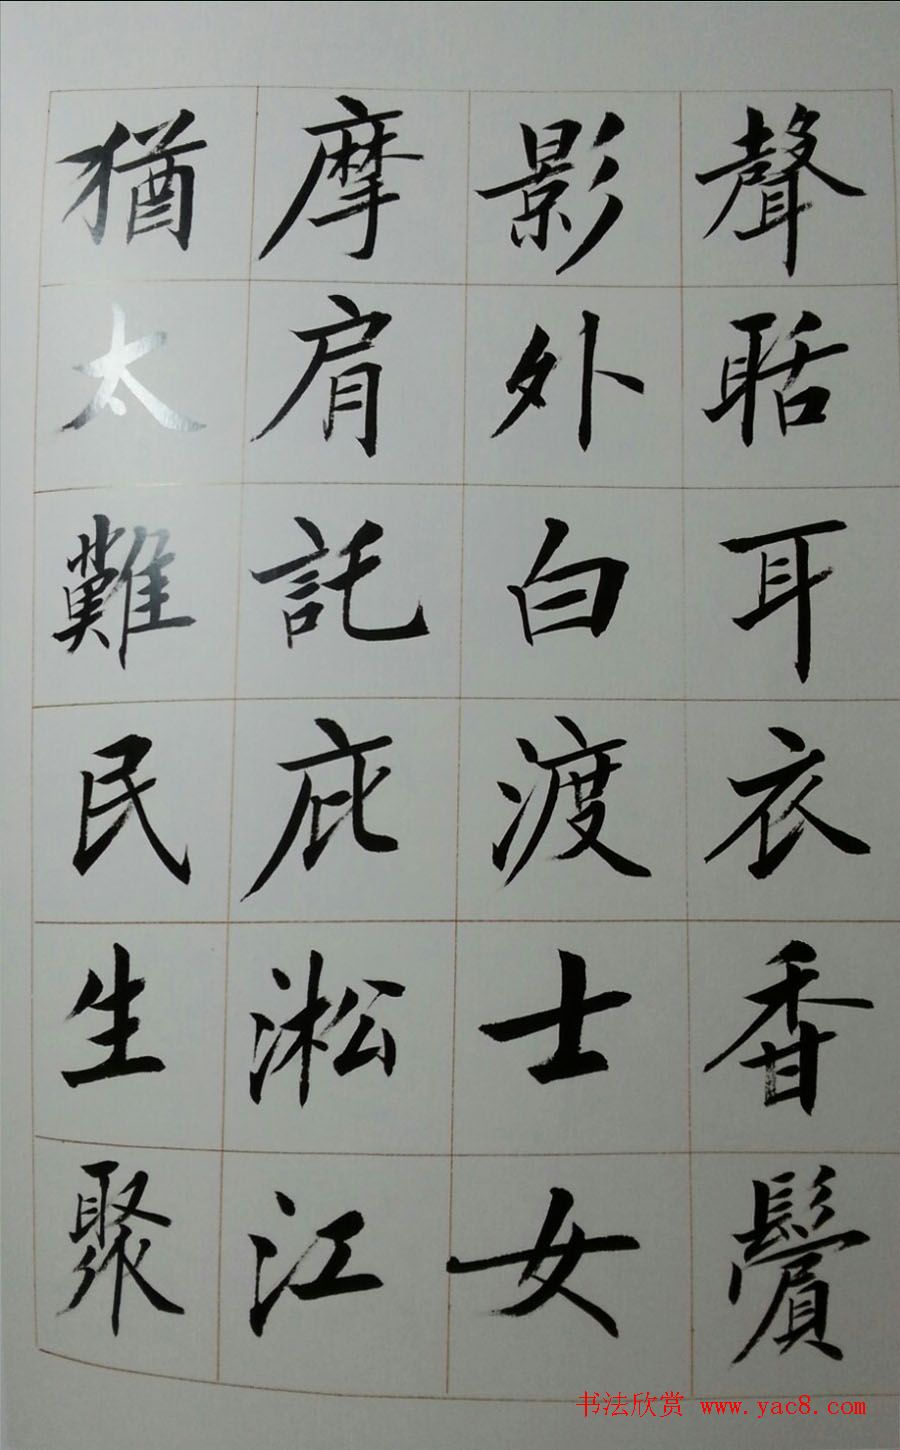 聲聒耳衣香鬢
影外白渡士女
摩肩託庇淞江
猶太難民生聚
书法欣赏 www.yac8.com